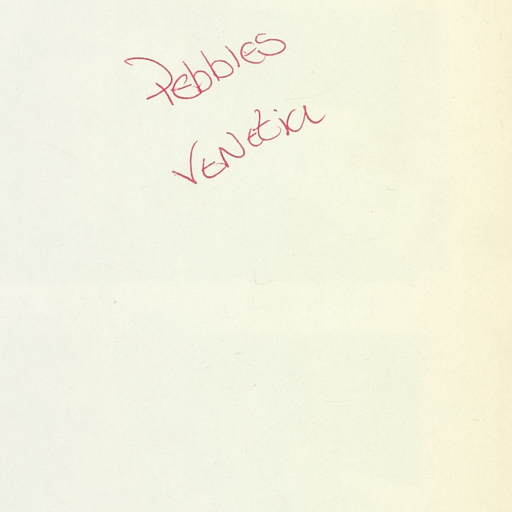 Pebbles
Venezia